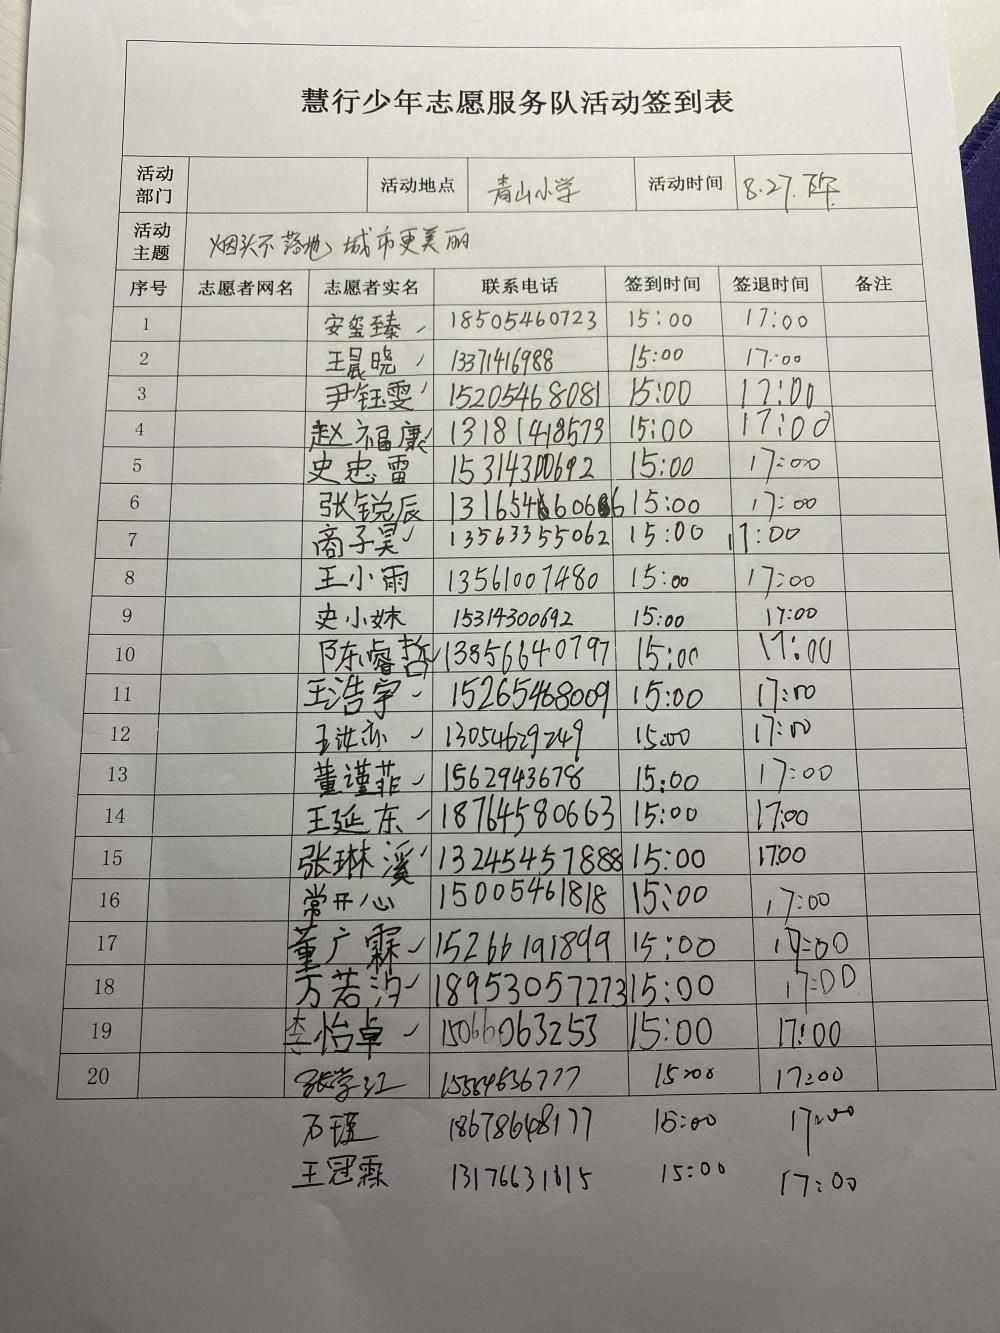 慧行少年志愿服务队活动签到表
活动部门 活动地点 青山小学 活动时间 8.27.下午
活动主题 烟头不落地、城市更美丽
序号 志愿者网名 志愿者实名 联系电话 签到时间 签退时间 备注
1 安玺臻 ✓ 18505460723 15:00 17:00
2 王晨晓 ✓ 13371416988 15:00 17:00
3 尹钰雯 ✓ 15205468081 15:00 17:00
4 赵福康 ✓ 13181418573 15:00 17:00
5 史忠雷 15314300692 15:00 17:00
6 张锐辰 15:00 17:00
7 商子昊 ✓ 13563355062 15:00 17:00
8 王小雨 13561007480 15:00 17:00
9 史小妹 15314300692 15:00 17:00
10 陈睿哲 ✓ 13856640797 15:00 17:00
11 王浩宇 ✓ 15265468009 15:00 17:00
12 王汝亦 ✓ 13054629249 15:00 17:00
13 董谨菲 ✓ 1562943678 15:00 17:00
14 王延东 ✓ 18764580663 15:00 17:00
15 张琳溪 ✓ 13245457888 15:00 17:00
16 常开心 15005461818 15:00 17:00
17 董广霖 ✓ 15266191899 15:00 17:00
18 万若汐 ✓ 18953057273 15:00 17:00
19 李怡卓 ✓ 15066063253 15:00 17:00
20 张学江 15:00 17:00
石瑾 18678648177 15:00 17:00
王冠霖 13176631815 15:00 17:00